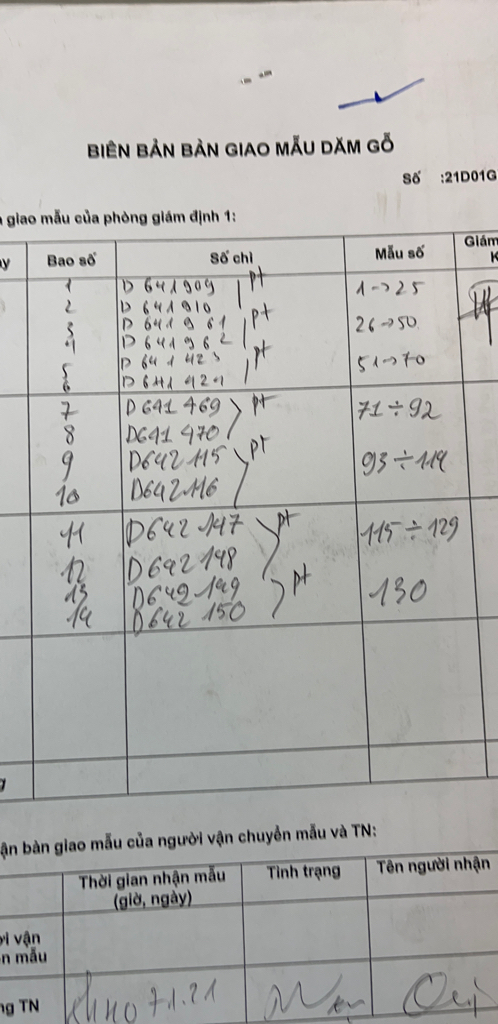 BIÊN BẢN BÀN GIAO MẪU DĂM GỖ
Số :21D01G
giao mẫu của phòng giám định 1:
Bao số Số chì Mẫu số Giám
1 D 641909 pt 1→25
2 D 641910
3 D 641961 pt 26→50
4 D 641962
5 D 641423 pt 51→70
6
7 D641 469 pt 71÷92
8 D641 470
9 D642 115 pt
10 D642 116
11 D642 147 pt 115÷129
12 D642 148
13 D642 149 pt 130
14 D642 150
bàn giao mẫu của người vận chuyển mẫu và TN:
Thời gian nhận mẫu Tình trạng Tên người nhận
(giờ, ngày)
vận
mẫu
TN 7.1.21